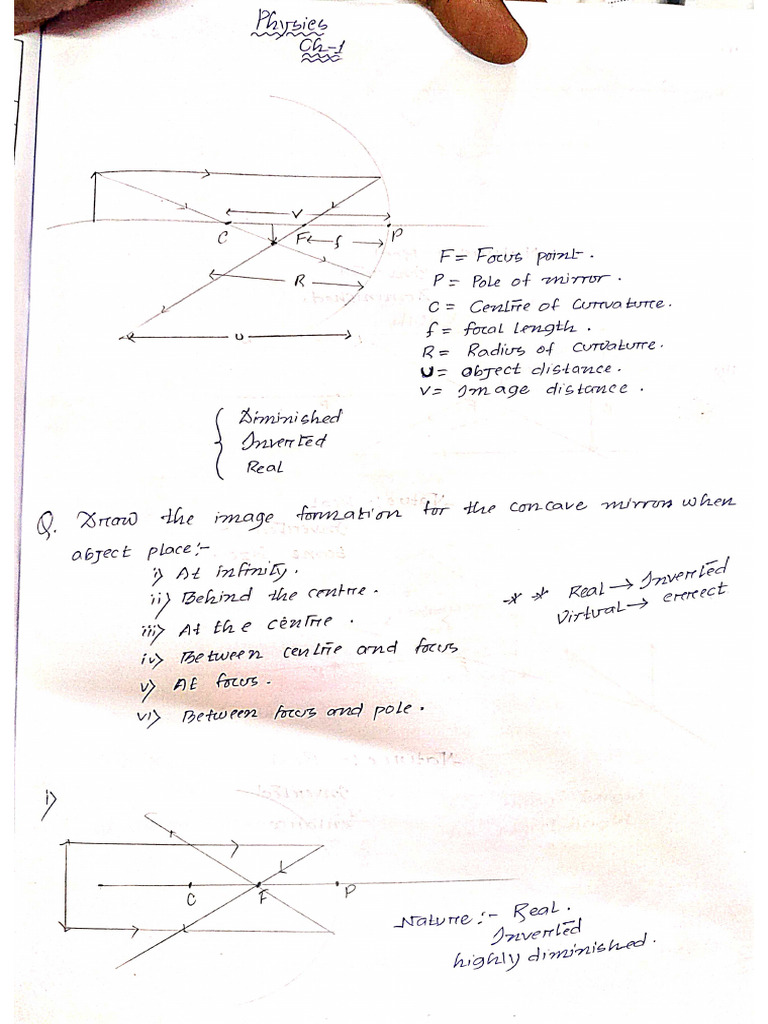 Physics
Ch-1
V
C
F
f
P
R
u
F = Focus point.
P = Pole of mirror.
C = Centre of curvature.
f = focal length.
R = Radius of curvature.
U = object distance.
V = Image distance.
Diminished
Inverted
Real
Q. Draw the image formation for the concave mirror when
object place:-
i) At infinity.
ii) Behind the centre.
iii) At the centre.
iv) Between centre and focus
v) At focus.
vi) Between focus and pole.
** Real → Inverted
Virtual → errect
i)
C
F
P
Nature:- Real.
Inverted
highly diminished.